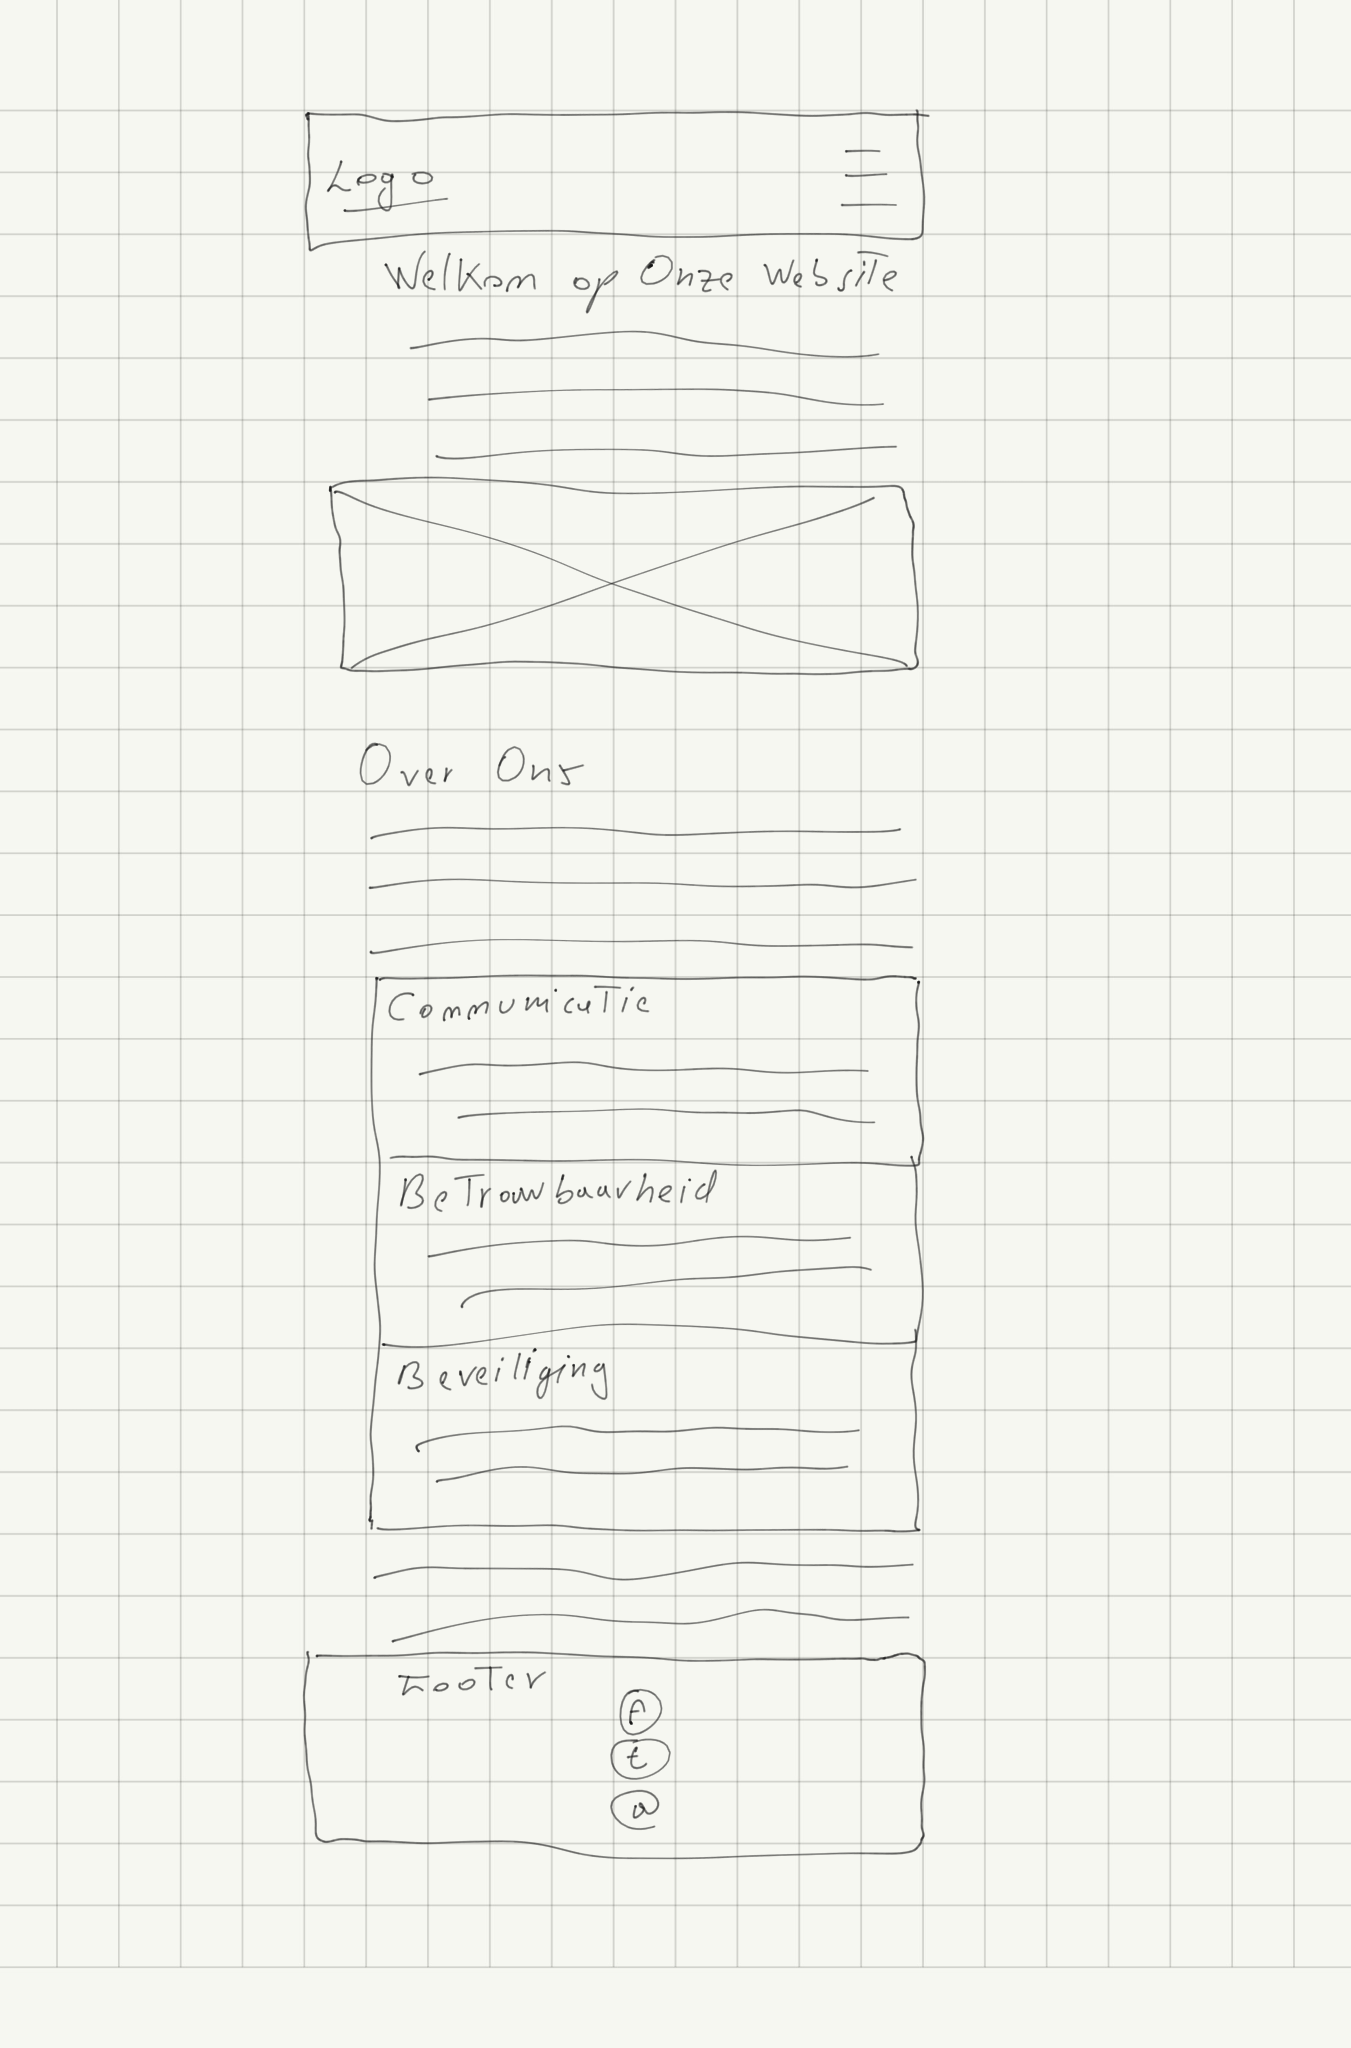 Logo
Welkom op Onze Website
Over Ons
Communicatie
Betrouwbaarheid
Beveiliging
Footer
f
t
@